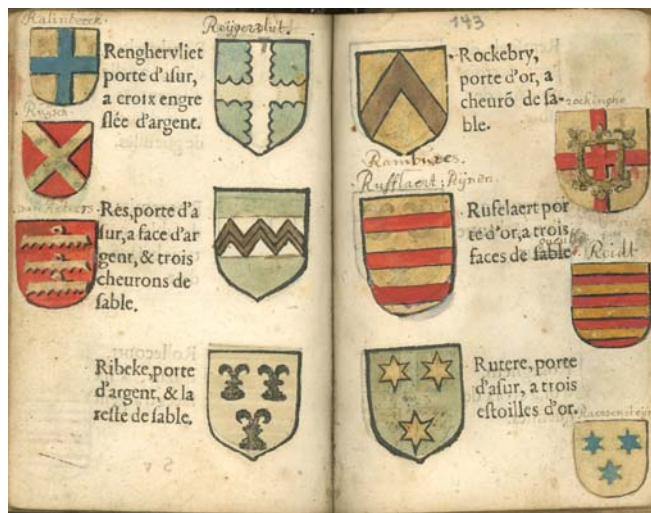 Kalinbeeck.
Reÿgersvliet.
Renghervliet
porte d'aſur,
a croix engre
ſlée d'argent.
Ruÿsch.
Res, porte d'a
ſur, a face d'ar
gent, & trois
cheurons de
ſable.
Ribeke, porte
d'argent, & la
reſte de ſable.
143
Rockebry,
porte d'or, a
cheurō de ſa-
ble.
rockinghe
Rambures.
Rufflaert; Rÿnen.
Ruſelaert por
te d'or, a trois
gueulles
faces de ſable
Roidt
Rutere, porte
d'aſur, a trois
eſtoilles d'or.